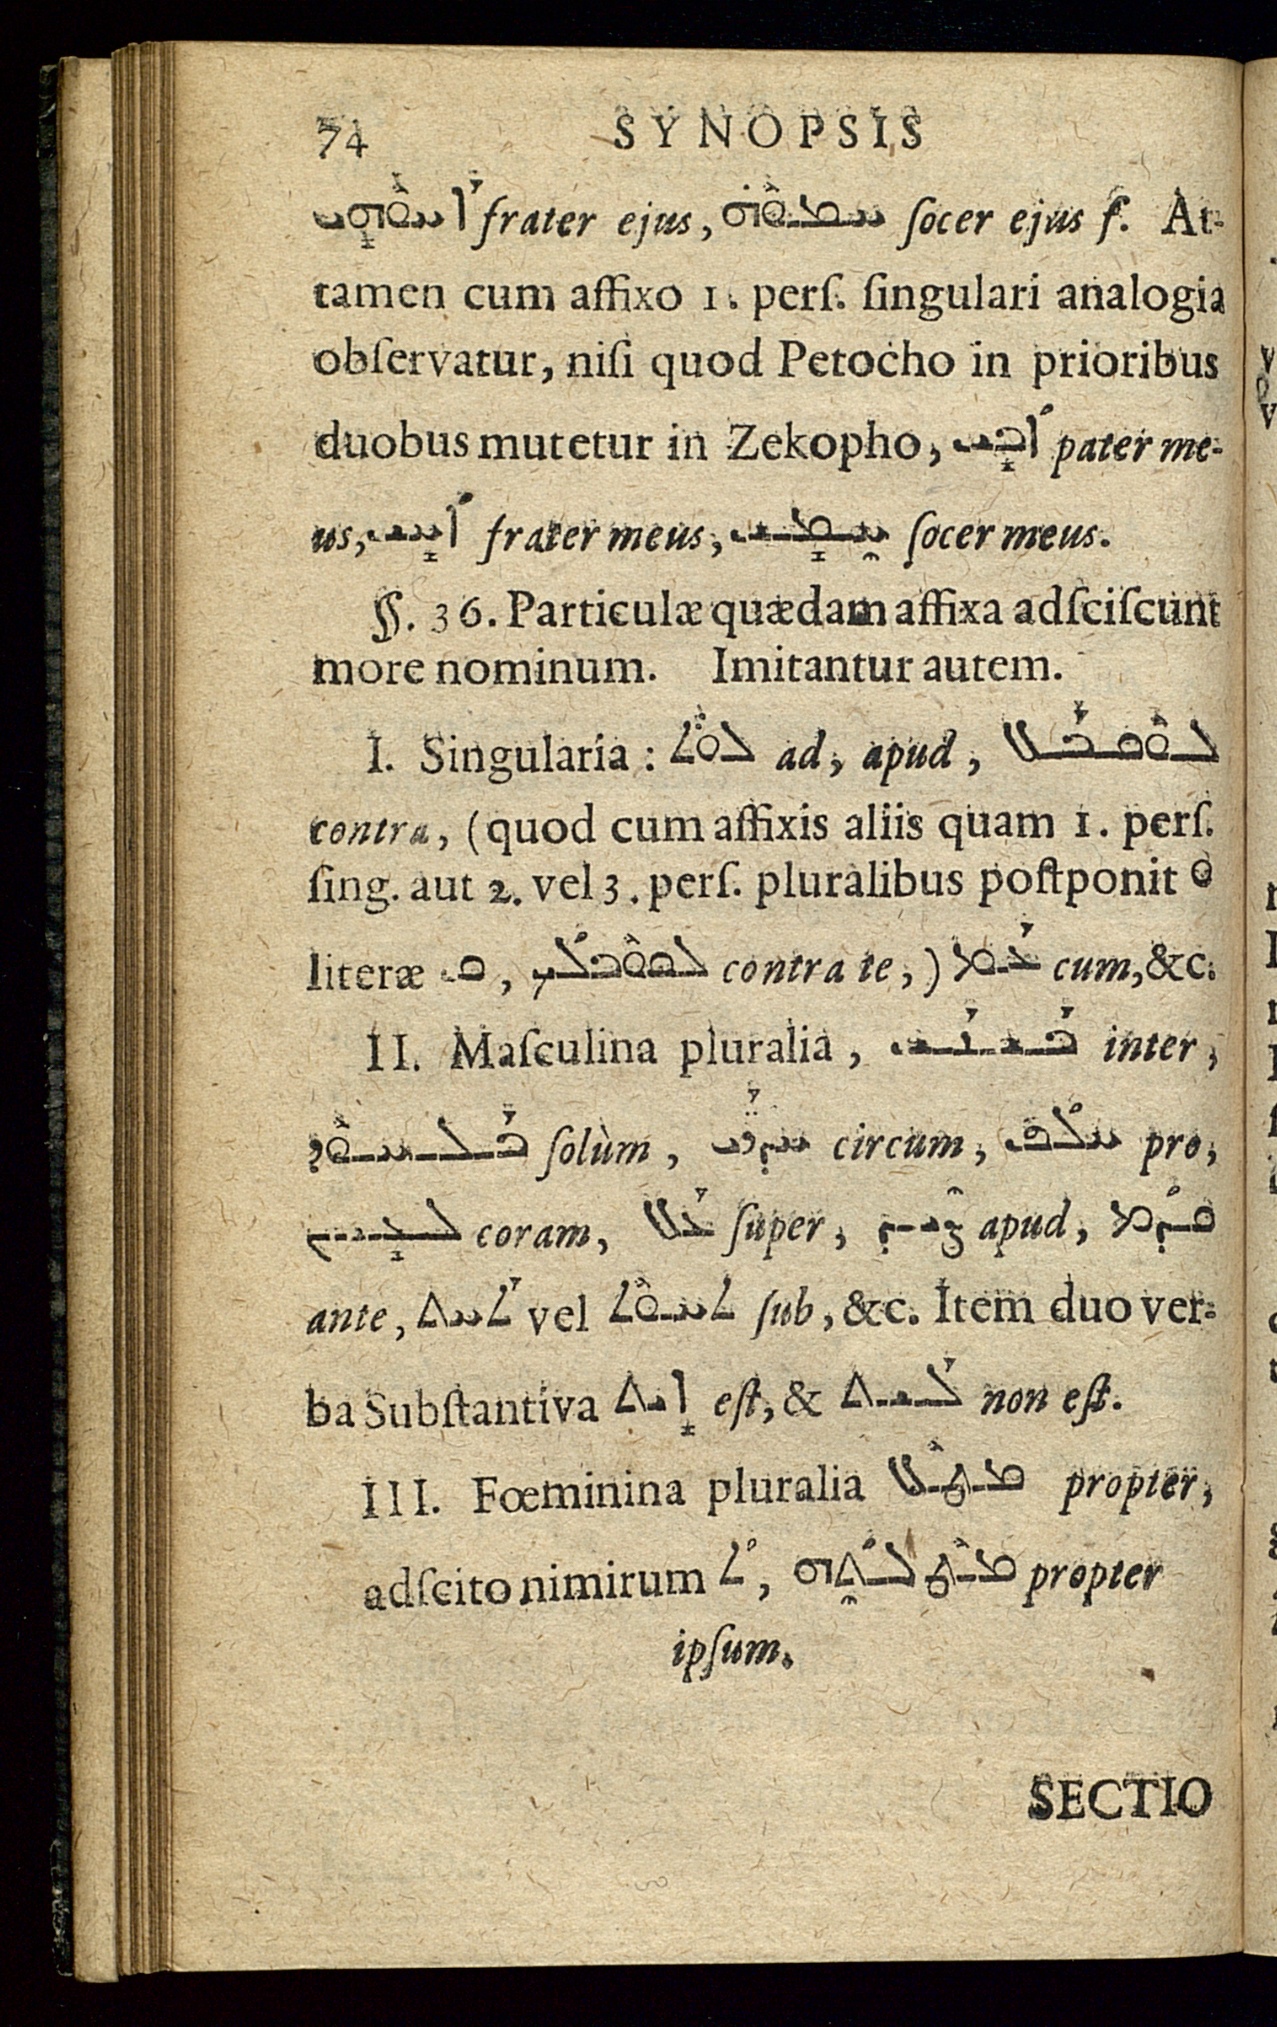 74 SYNOPSIS
ܐܰܚܘܗܝ frater ejus, ܚܡܘܗ ſocer ejus f. At-
tamen cum affixo 1. perſ. ſingulari analogia
obſervatur, niſi quod Petocho in prioribus
duobus mutetur in Zekopho, ܐܳܒܝ pater me-
us, ܐܳܚܝ frater meus, ܚܡܝ ſocer meus.
§. 36. Particulæ quædam affixa adſciſcunt
more nominum. Imitantur autem.
I. Singularia: ܠܘܬ ad, apud, ܠܘܩܒܠ
contra, (quod cum affixis aliis quam 1. perſ.
ſing. aut 2. vel 3. perſ. pluralibus poſtponit ܘ
literæ ܩ, ܠܩܘܒܠܟ contra te,) ܥܰܡ cum, &c.
II. Maſculina pluralia, ܒܰܝܢܰܝ inter,
ܒܰܠܚܘܕ ſolùm, ܚܕܪܝ circum, ܚܠܳܦ pro,
ܠܥܝܢ coram, ܥܰܠ ſuper, ܨܝܕ apud, ܩܕܳܡ
ante, ܬܚܶܝܬ vel ܬܚܘܬ ſub, &c. Item duo ver-
ba Subſtantiva ܐܝܬ eſt, & ܠܰܝܬ non eſt.
III. Fœminina pluralia ܡܛܠ propter,
adſcito nimirum ܬ, ܡܛܠܬܗ propter
ipſum.
SECTIO